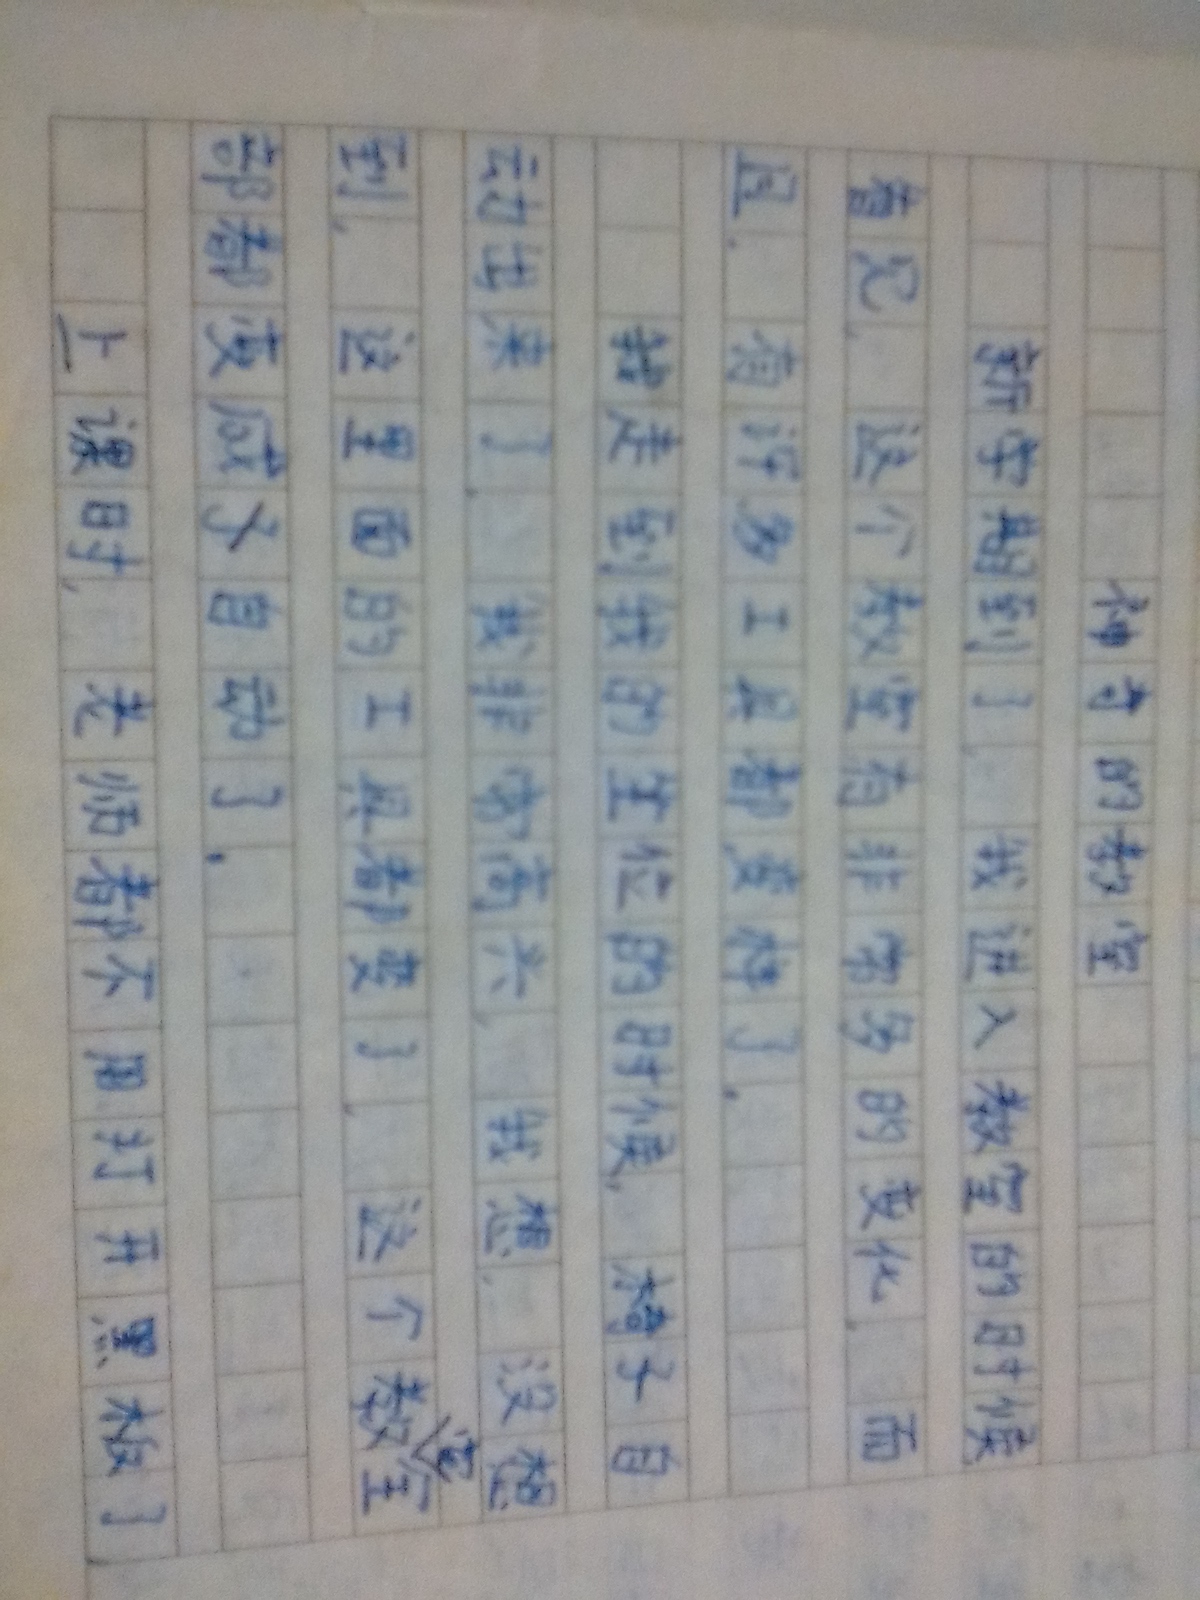 神奇的教室
新学期到了,我进入教室的时候
看见,这个教室有非常多的变化,而
且,有许多工具都变样了.
我走到我的坐位的时候,椅子自
动出来了.我非常高兴,我想,没想
到,这里面的工具都变了,这个教室全
部都变成了自动了.
上课时,老师都不用打开黑板了